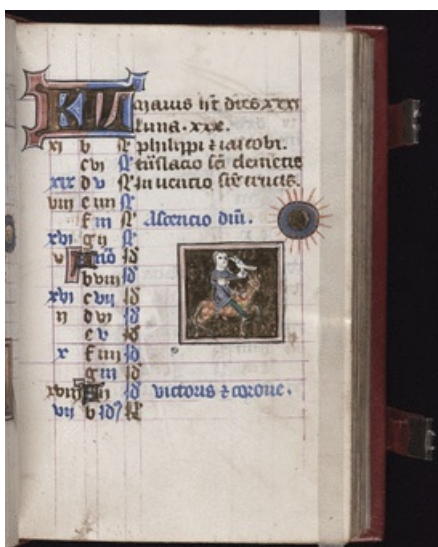 KL Maius ht dies xxxi
Luna. xxx.
xi b philippi ⁊ iacobi.
c vi sci clemetis
xix d v Inuentio sce crucis.
viii e iiii
f iii Ascencio dni.
xvi g ii
v A nō Id
b viii Id
xvi c vii Id
ii d vi Id
e v Id
x f iiii Id
g iii Id
xviii A ii Id victoris ⁊ corone.
vii b Id